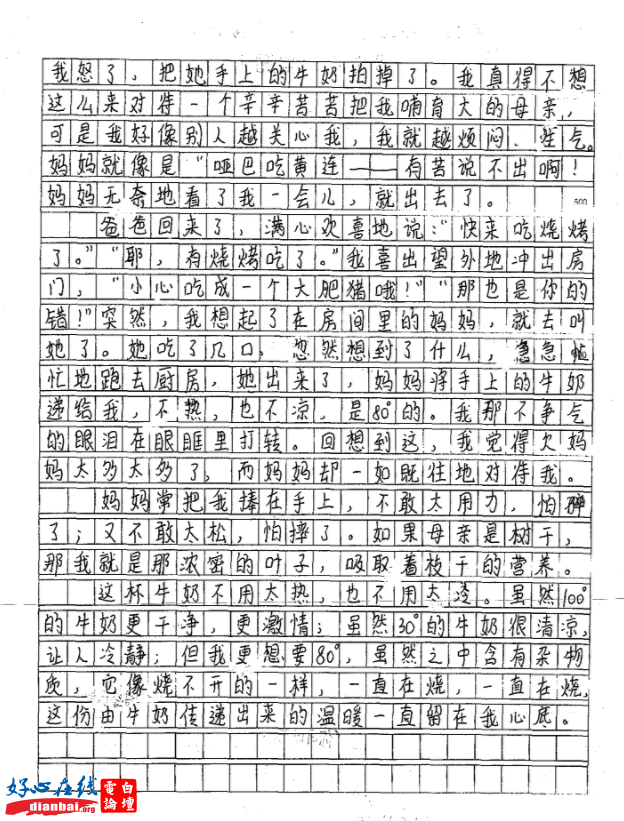 我怒了，把她手上的牛奶拍掉了。我真得不想
这么来对待一个辛辛苦苦把我哺育大的母亲，
可是我好像别人越关心我，我就越烦闷、生气。
妈妈就像是“哑巴吃黄连——有苦说不出啊！
妈妈无奈地看了我一会儿，就出去了。
500
爸爸回来了，满心欢喜地说：“快来吃烧烤
了。”“耶，有烧烤吃了。”我喜出望外地冲出房
门，“小心吃成一个大肥猪哦！”“那也是你的
错！”突然，我想起了在房间里的妈妈，就去叫
她了。她吃了几口，忽然想到了什么，急急忙
忙地跑去厨房，她出来了，妈妈将手上的牛奶
递给我，不热，也不凉，是80°的。我那不争气
的眼泪在眼眶里打转。回想到这，我觉得欠妈
妈太多太多了，而妈妈却一如既往地对待我。
妈妈常把我捧在手上，不敢太用力，怕碎
了；又不敢太松，怕摔了。如果母亲是树干，
那我就是那浓密的叶子，吸取着枝干的营养。
这杯牛奶不用太热，也不用太冷。虽然100°
的牛奶更干净，更激情；虽然30°的牛奶很清凉，
让人冷静；但我更想要80°，虽然之中含有杂物
质，它像烧不开的一样，一直在烧，一直在烧，
这份由牛奶传递出来的温暖一直留在我心底。
好心在线
dianbai.org
电白論壇